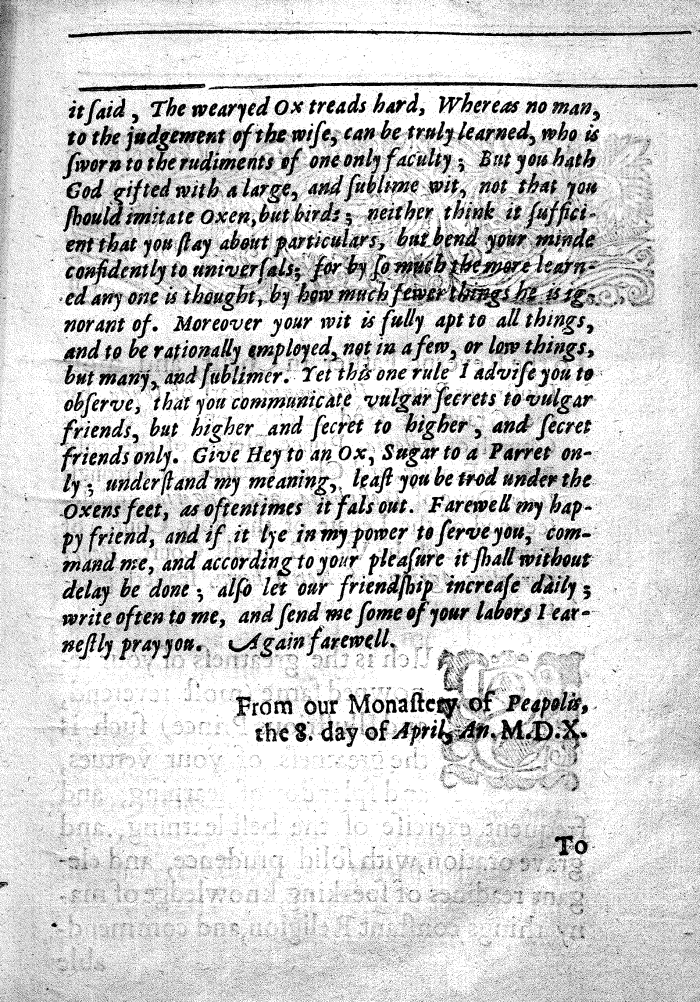 it ſaid, The wearyed Ox treads hard, Whereas no man,
to the judgement of the wiſe, can be truly learned, who is
ſworn to the rudiments of one only faculty; But you hath
God gifted with a large, and ſublime wit, not that you
ſhould imitate Oxen, but birds; neither think it ſuffici-
ent that you ſtay about particulars, but bend your minde
confidently to univerſals; for by ſo much the more learn-
ed any one is thought, by how much fewer things he is ig-
norant of. Moreover your wit is fully apt to all things,
and to be rationally employed, not in a few, or low things,
but many, and ſublimer. Yet this one rule I adviſe you to
obſerve, that you communicate vulgar ſecrets to vulgar
friends, but higher and ſecret to higher, and ſecret
friends only. Give Hey to an Ox, Sugar to a Parret on-
ly; underſtand my meaning, leaſt you be trod under the
Oxens feet, as oftentimes it fals out. Farewell my hap-
py friend, and if it lye in my power to ſerve you, com-
mand me, and according to your pleaſure it ſhall without
delay be done; alſo let our friendſhip increaſe daily;
write often to me, and ſend me ſome of your labors I ear-
neſtly pray you. Again farewell.
From our Monaſtery of Peapolis,
the 8. day of April, An. M.D.X.
To